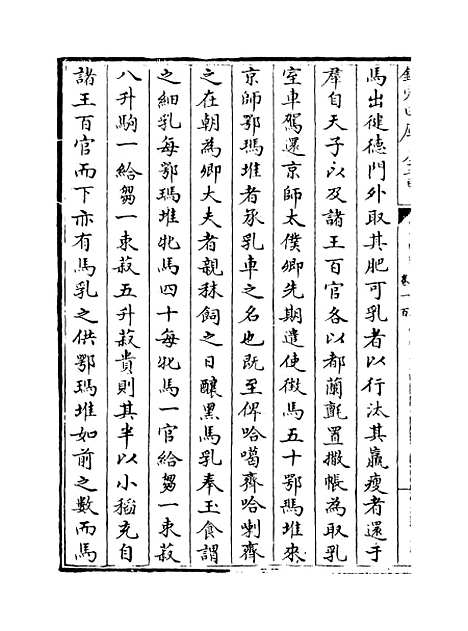 欽定四庫全書
卷一百
馬出健德門外取其肥可乳者以行汰其羸瘦者還于
羣自天子以及諸王百官各以都蘭氈置撒帳為取乳
室車駕還京師太僕卿先期遣使徵馬五十鄂瑪堆來
京師鄂瑪堆者承乳車之名也既至俾哈噶齊哈喇齊
之在朝為卿大夫者親秣飼之日釀黑馬乳奉玉食謂
之細乳每鄂瑪堆牝馬四十每牝馬一官給芻一束菽
八升駒一給芻一束菽五升菽貴則其半以小稻充自
諸王百官而下亦有馬乳之供鄂瑪堆如前之數而馬